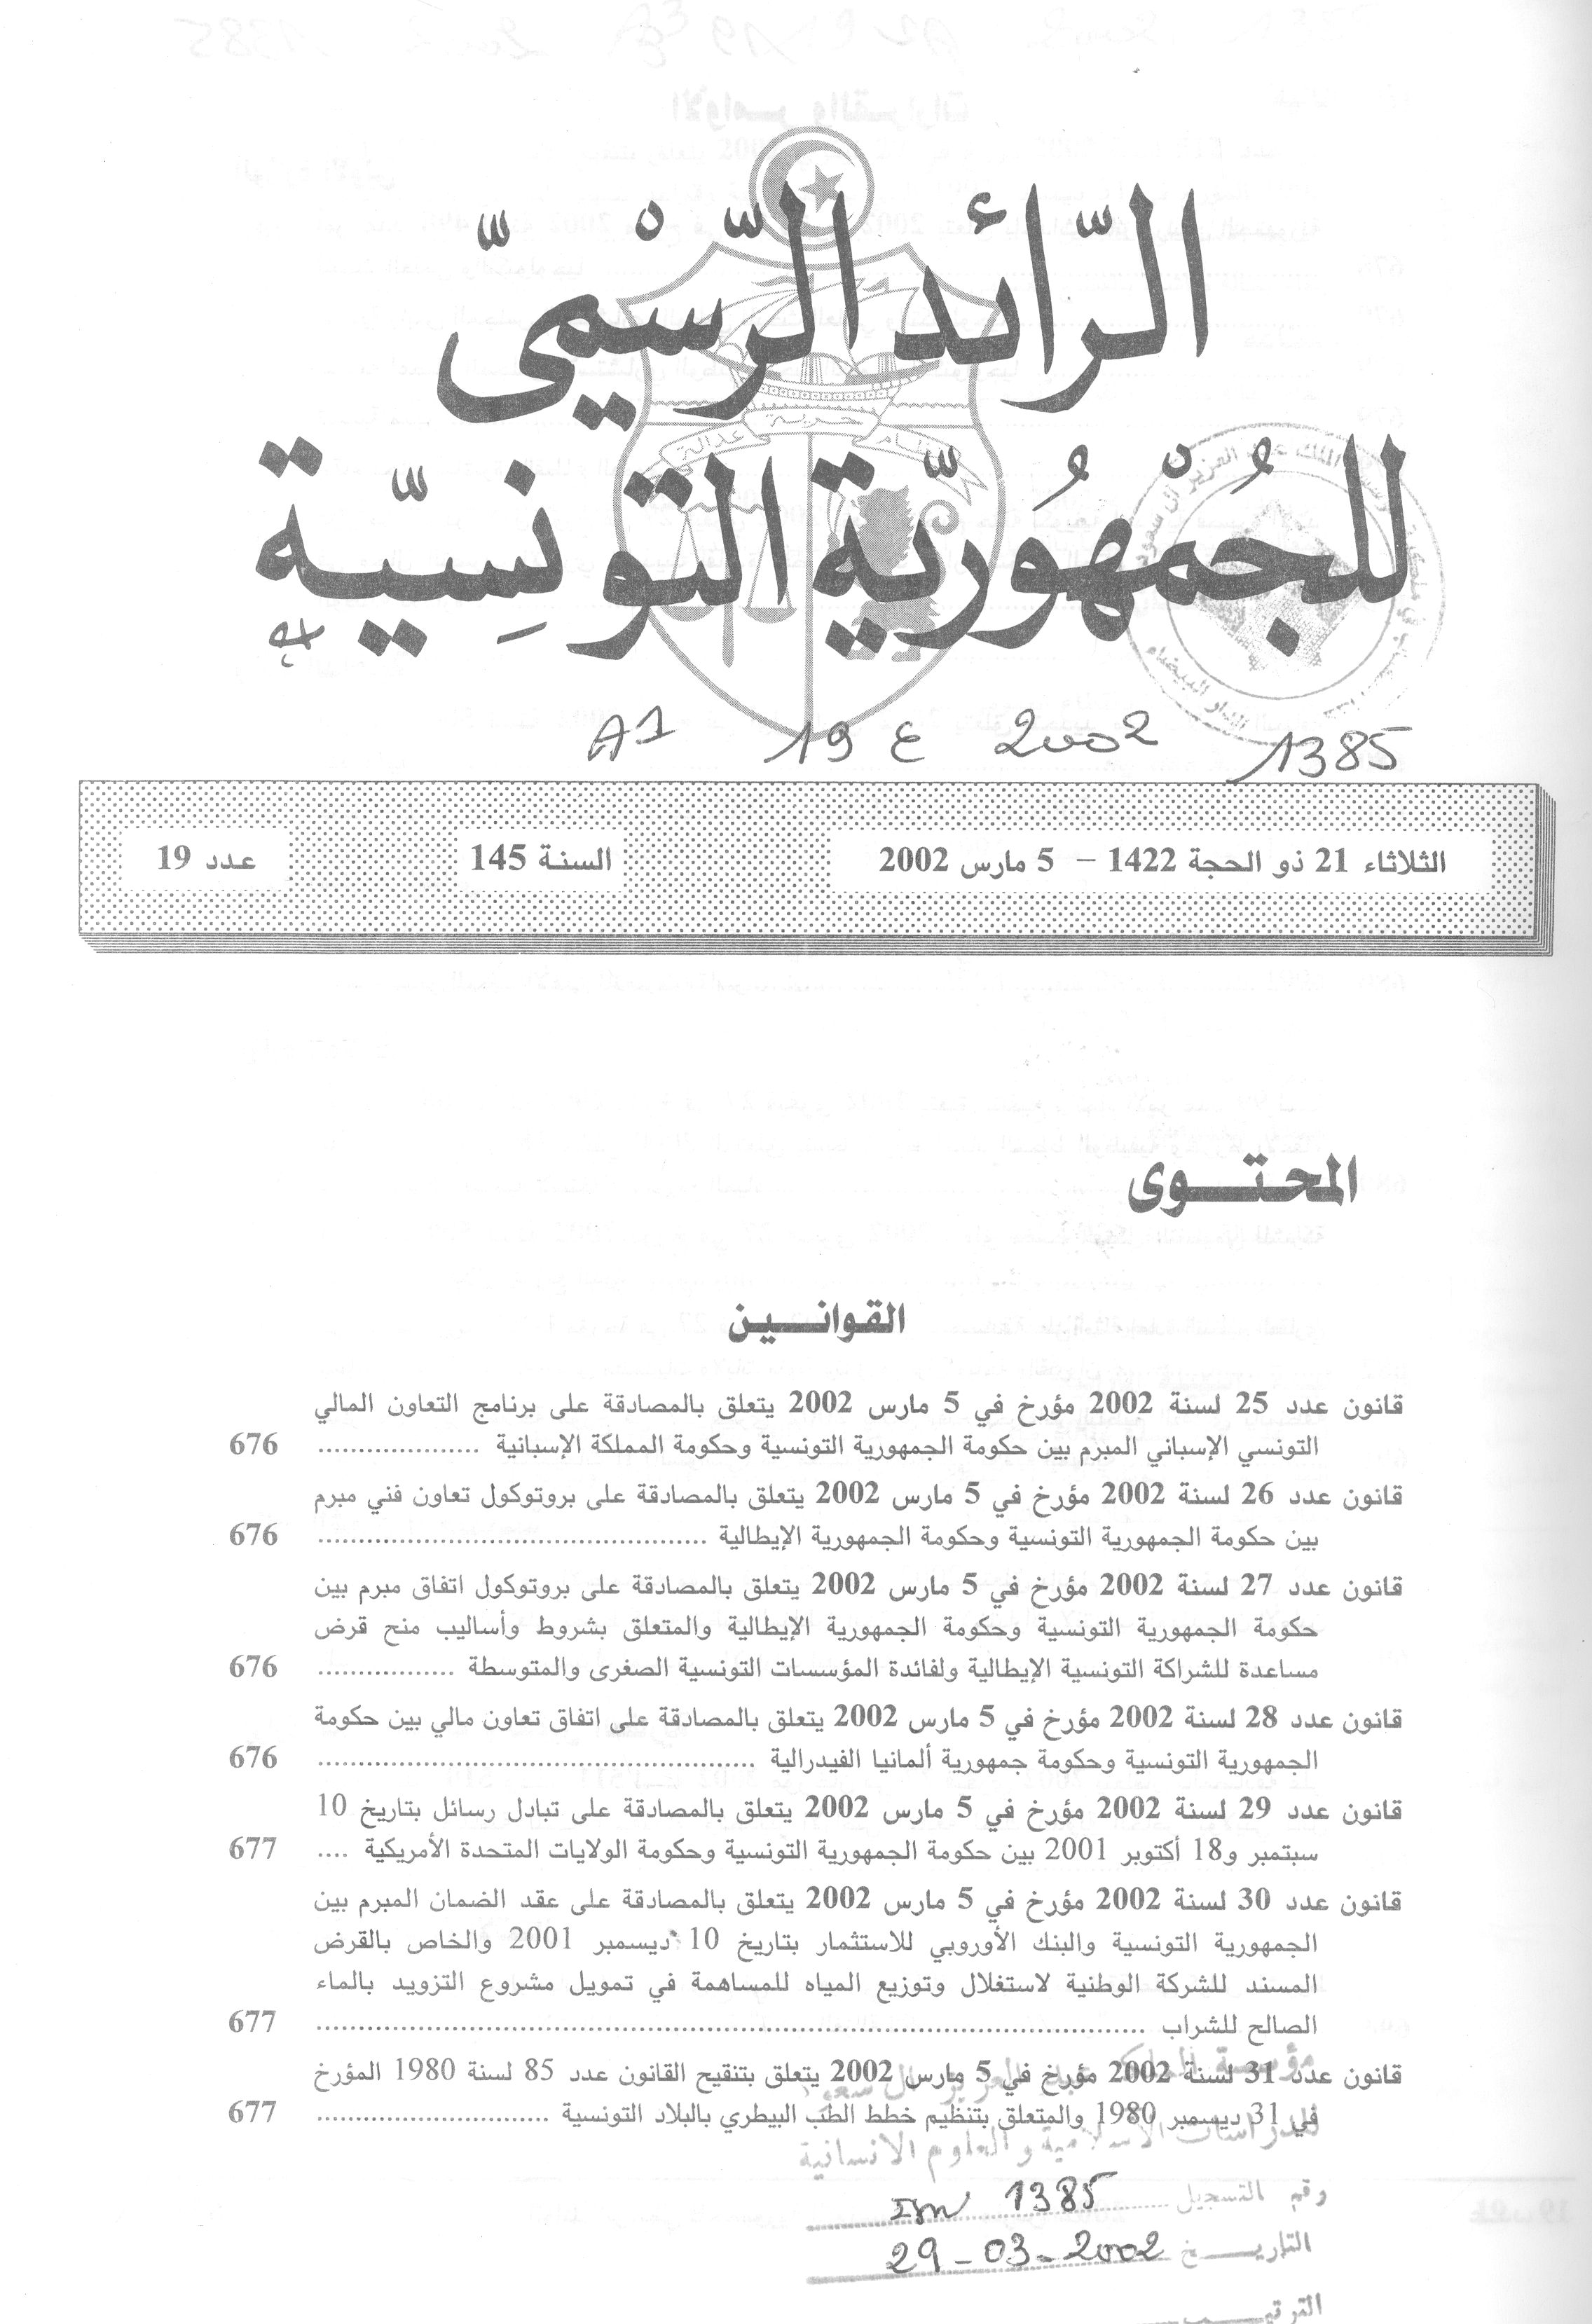 الرّائد الرّسْميّ
للجُمْهُوريّة التونِسيّة
نظام حرية عدالة
A1 19 ع 2002 1385
الثلاثاء 21 ذو الحجة 1422 – 5 مارس 2002 السنة 145 عدد 19
المحتوى
القوانين
قانون عدد 25 لسنة 2002 مؤرخ في 5 مارس 2002 يتعلق بالمصادقة على برنامج التعاون المالي
التونسي الإسباني المبرم بين حكومة الجمهورية التونسية وحكومة المملكة الإسبانية ................... 676
قانون عدد 26 لسنة 2002 مؤرخ في 5 مارس 2002 يتعلق بالمصادقة على بروتوكول تعاون فني مبرم
بين حكومة الجمهورية التونسية وحكومة الجمهورية الإيطالية ............................................. 676
قانون عدد 27 لسنة 2002 مؤرخ في 5 مارس 2002 يتعلق بالمصادقة على بروتوكول اتفاق مبرم بين
حكومة الجمهورية التونسية وحكومة الجمهورية الإيطالية والمتعلق بشروط وأساليب منح قرض
مساعدة للشراكة التونسية الإيطالية ولفائدة المؤسسات التونسية الصغرى والمتوسطة ................ 676
قانون عدد 28 لسنة 2002 مؤرخ في 5 مارس 2002 يتعلق بالمصادقة على اتفاق تعاون مالي بين حكومة
الجمهورية التونسية وحكومة جمهورية ألمانيا الفيدرالية .................................................. 676
قانون عدد 29 لسنة 2002 مؤرخ في 5 مارس 2002 يتعلق بالمصادقة على تبادل رسائل بتاريخ 10
سبتمبر و18 أكتوبر 2001 بين حكومة الجمهورية التونسية وحكومة الولايات المتحدة الأمريكية .... 677
قانون عدد 30 لسنة 2002 مؤرخ في 5 مارس 2002 يتعلق بالمصادقة على عقد الضمان المبرم بين
الجمهورية التونسية والبنك الأوروبي للاستثمار بتاريخ 10 ديسمبر 2001 والخاص بالقرض
المسند للشركة الوطنية لاستغلال وتوزيع المياه للمساهمة في تمويل مشروع التزويد بالماء
الصالح للشراب ................................................................................................ 677
قانون عدد 31 لسنة 2002 مؤرخ في 5 مارس 2002 يتعلق بتنقيح القانون عدد 85 لسنة 1980 المؤرخ
في 31 ديسمبر 1980 والمتعلق بتنظيم خطط الطب البيطري بالبلاد التونسية ........................... 677
مؤسسة الملك عبد العزيز آل سعود
للدراسات الاسلامية و العلوم الانسانية
رقم التسجيل 1385
التاريخ 29-03-2002
الترتيب